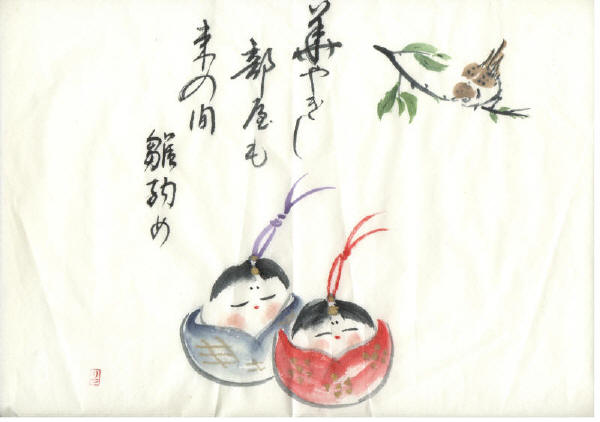 華やぎし
部屋も
束の間
雛納め